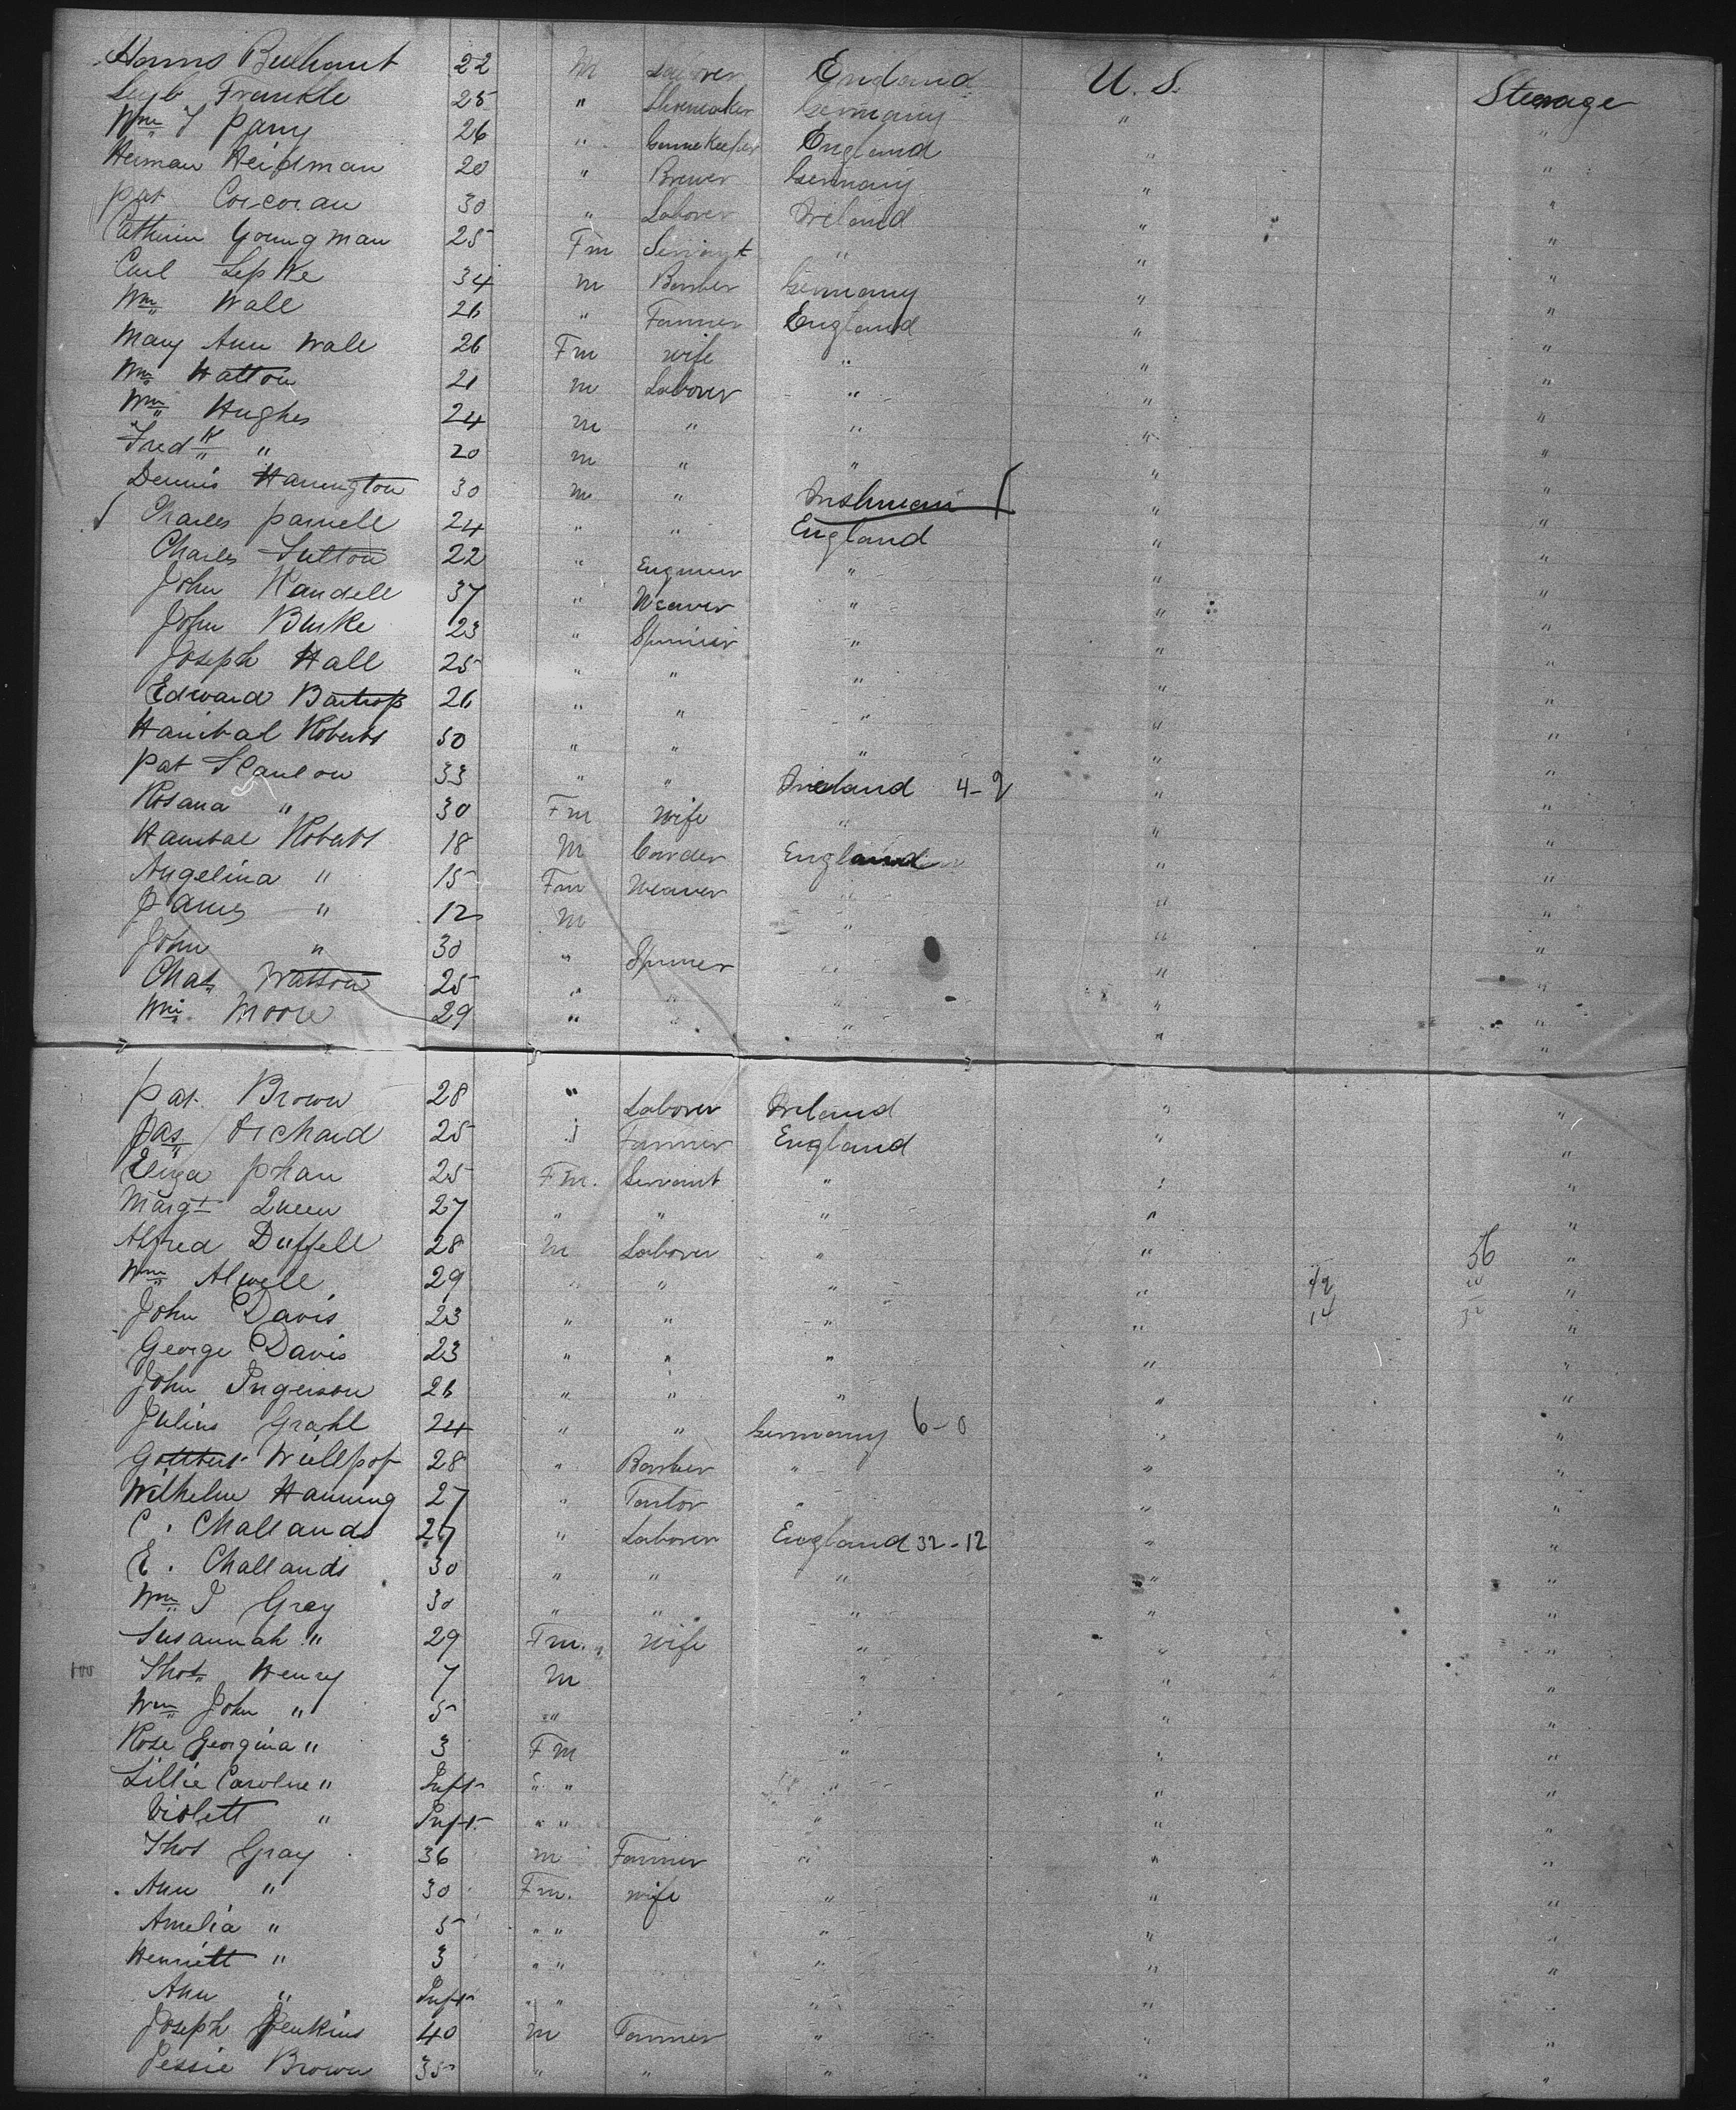 22 M Laborer England U. S. Steerage
Frankle 25 " Shoemaker Germany " "
Wm T Parry 26 " Game Keeper England " "
Herman Heidman 20 " Brewer Germany " "
Pat Corcoran 30 " Laborer Ireland " "
Catherin Youngman 25 Fm Servant " " "
Carl Lepke 34 M Barber Germany " "
Wm Wall 26 " Farmer England " "
Mary Ann Wall 26 Fm Wife " " "
Wm Hatton 21 M Laborer " " "
Wm Hughes 24 M " " " "
Fredk " 20 M " " " "
Dennis Harrington 30 M " " "
Charles Parnell 24 " " England " "
Charles Sutton 22 " Engineer " " "
John Kandell 37 " Weaver " " "
John Burke 23 " Spinner " " "
Joseph Hall 25 " " " " "
Edward Bartrop 26 " " " " "
Hanibal Roberts 50 " " " " "
Pat Scanlon 33 " " Ireland 4- " "
Rosana " 30 Fm Wife " " "
Hanibal Roberts 18 M Carder England " "
Angelina " 15 Fm Weaver " " "
James " 12 M " " "
John " 30 " Spinner " " "
Chas Watson 25 " " " " "
Wm Moore 29 " " " " "
Pat Brown 28 " Laborer Ireland " "
Jas Orchard 25 " Farmer England " "
Eliza Phan 25 Fm. Servant " " "
Margt Queen 27 " " " " "
Alfred Duffell 28 M Laborer " " 56 "
Wm Alwell 29 " " " " "
John Davis 23 " " " " 14 "
George Davis 23 " " " " "
John Ingerson 26 " " " " "
Julius Grahl 24 " " Germany 6-0 " "
28 " Barber " " "
Wilhelm Hanning 27 " " " "
C. Challands 27 " Laborer England 32-12 " "
E. Challands 30 " " " " "
Wm J Gray 30 " " " " "
Susannah " 29 Fm. Wife " " "
100 Thos Henry 7 M " " "
Wm John " 5 " " " "
Rose Georgina " 3 Fm " " "
Lillie Caroline " Inft " " " " "
Violett " Inft " " " " "
Thos Gray 36 M Farmer " " "
Ann " 30 Fm. Wife " " "
Amelia " 5 " " " " "
Henriett " 3 " " " " "
Ann " Inft " " " " "
Joseph Jenkins 40 M Farmer " " "
Jessie Brown 35 " " " " "